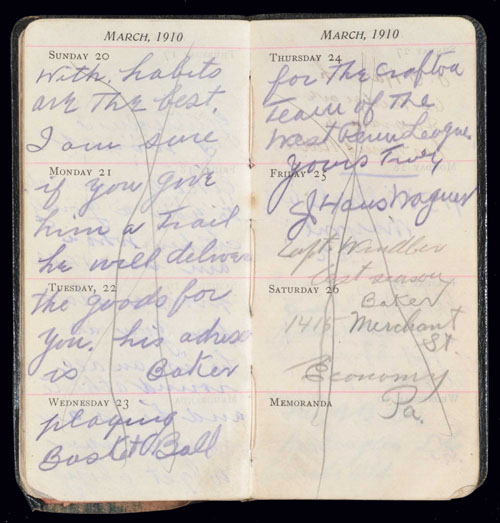 MARCH, 1910
SUNDAY 20
With, habits
are the best.
I am sure
MONDAY 21
if you give
him a Trail
he will deliver
TUESDAY, 22
the goods for
you. his adress
is Baker
WEDNESDAY 23
playing
Basket Ball
MARCH, 1910
THURSDAY 24
for the Crafton
Team of the
West Penn League
Yours Truly
FRIDAY 25
J. Hans Wagner
Capt. Windber
last season
SATURDAY 26
Baker
1415 Merchant
St.
Economy
MEMORANDA
Pa.